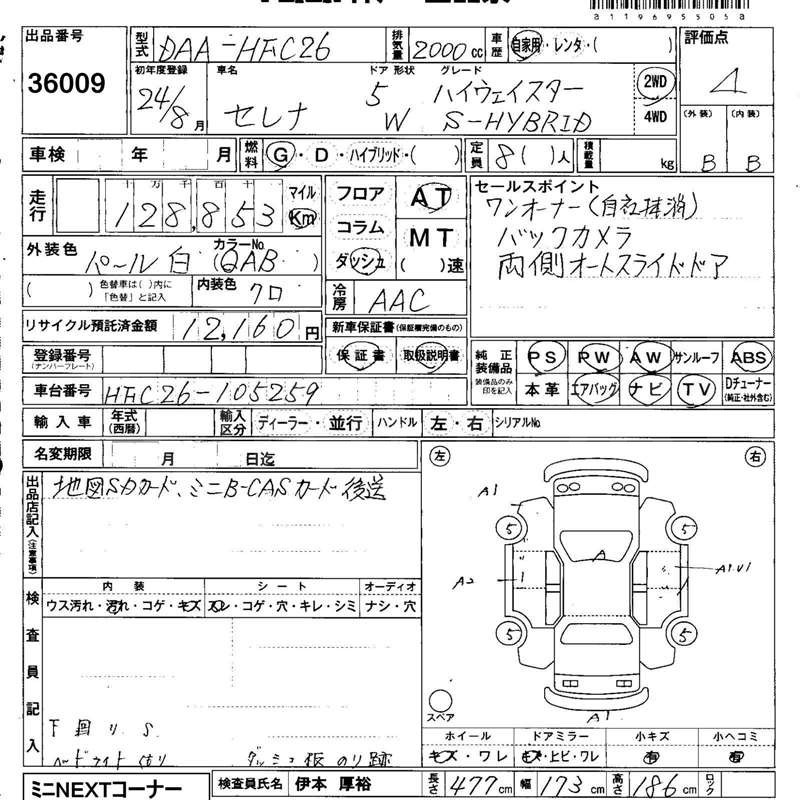 a119695505a
出品番号
36009
型式 DAA-HFC26
排気量 2000 cc
車歴 自家用・レンタ・( )
評価点
4
初年度登録 24/8月
車名 セレナ
ドア 形状 5 W
グレード ハイウェイスター
S-HYBRID
2WD
4WD
(外装) (内装)
B B
車検 年 月
燃料 G・D・ハイブリッド・( )
定員 8( )人
積載量 kg
走行 十 万 千
128,853
マイル
Km
フロア
コラム
ダッシュ
AT
MT
( )速
セールスポイント
ワンオーナー(自社抹消)
バックカメラ
両側オートスライドドア
外装色 パール白
カラーNo. (QAB )
( ) 色替車は( )内に「色替」と記入
内装色 クロ
冷房 AAC
リサイクル預託済金額 12,160 円
新車保証書(保証継続完備のもの)
保証書 取扱説明書
登録番号
(ナンバープレート)
車台番号 HFC26-105259
純正装備品
装備品のみ印を記入
PS PW AW サンルーフ ABS
本革 エアバッグ ナビ TV Dチューナー
(純正・社外含む)
輸入車 年式(西暦)
輸入区分 ディーラー・並行
ハンドル 左・右
シリアルNo.
名変期限 月 日迄
出品店記入(注意事項)
地図SDカード、ミニB-CASカード後送
左 右
A1
5 5
A
A2
A1.U1
5 5
スペア
A1
検査員記入
内装 シート オーディオ
ウス汚れ・汚れ・コゲ・キズ スレ・コゲ・穴・キレ・シミ ナシ・穴
下回り S
ヘッドライトくもり
ダッシュ板のり跡
ホイール ドアミラー 小キズ 小ヘコミ
キズ・ワレ キズ・上ビ・ワレ 有 有
ミニNEXTコーナー
検査員氏名 伊本 厚裕
長さ 477cm 幅 173cm 高さ 186cm ロック